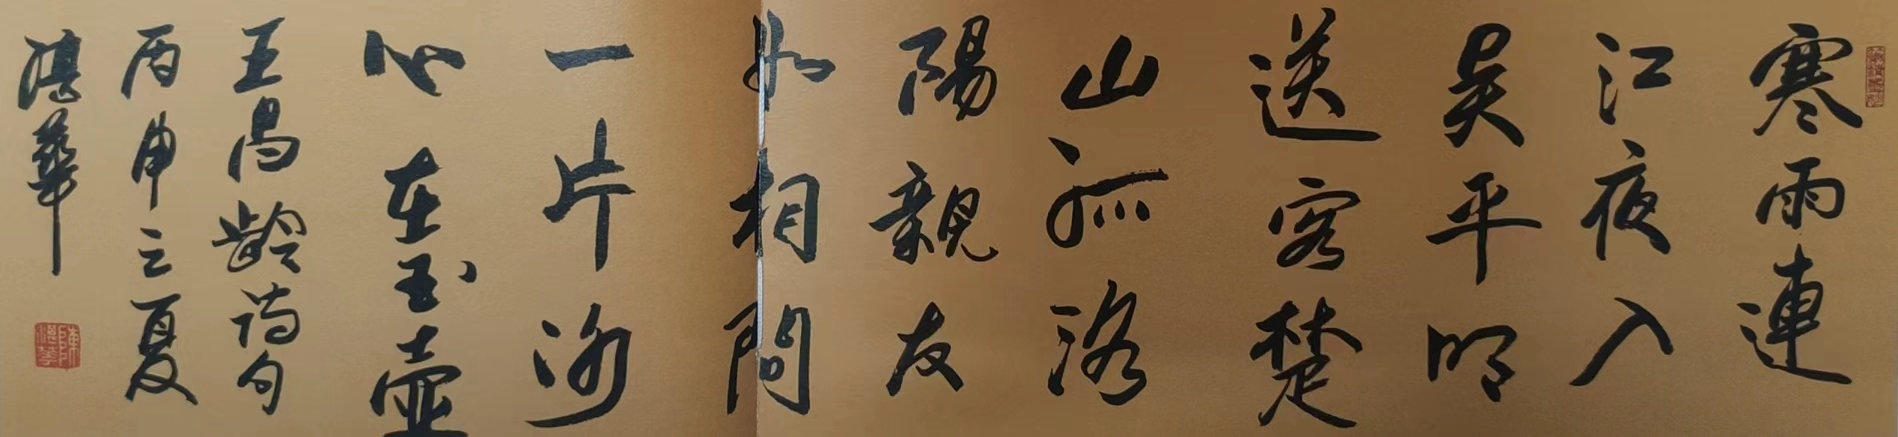 寒雨連
江夜入
吴平明
送客楚
山孤洛
陽親友
如相問
一片冰
心在玉壺
王昌齡詩句
丙申之夏
華